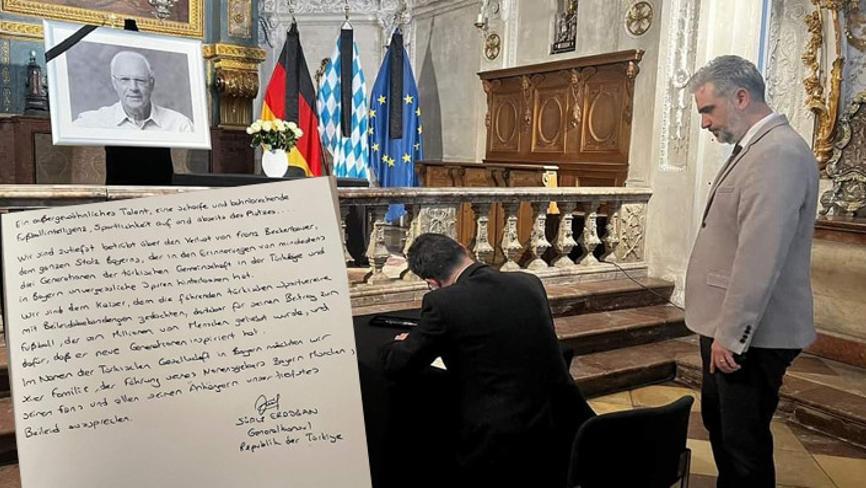 Ein außergewöhnliches Talent, eine scharfe und bahnbrechende
Fußballintelligenz, Sportlichkeit auf und abseits des Platzes....
Wir sind zutiefst betrübt über den Verlust von Franz Beckenbauer,
dem ganzen Stolz Bayerns, der in den Erinnerungen von mindestens
drei Generationen der türkischen Gemeinschaft in der Türkiye und
in Bayern unvergessliche Spuren hinterlassen hat.
Wir sind dem Kaiser, dem die führenden türkischen Sportvereine
mit Beileidsbekundungen gedachten, dankbar für seinen Beitrag zum
Fußball, der von Millionen von Menschen geliebt wurde, und
dafür, daß er neue Generationen inspiriert hat.
Im Namen der Türkischen Gesellschaft in Bayern möchten wir
der Familie, der Führung seines Bayern München,
seinen Fans und allen seinen Anhängern unser tiefstes
Beileid auszusprechen.
SÜALP ERDOĞAN
Generalkonsul
Republik der Türkiye